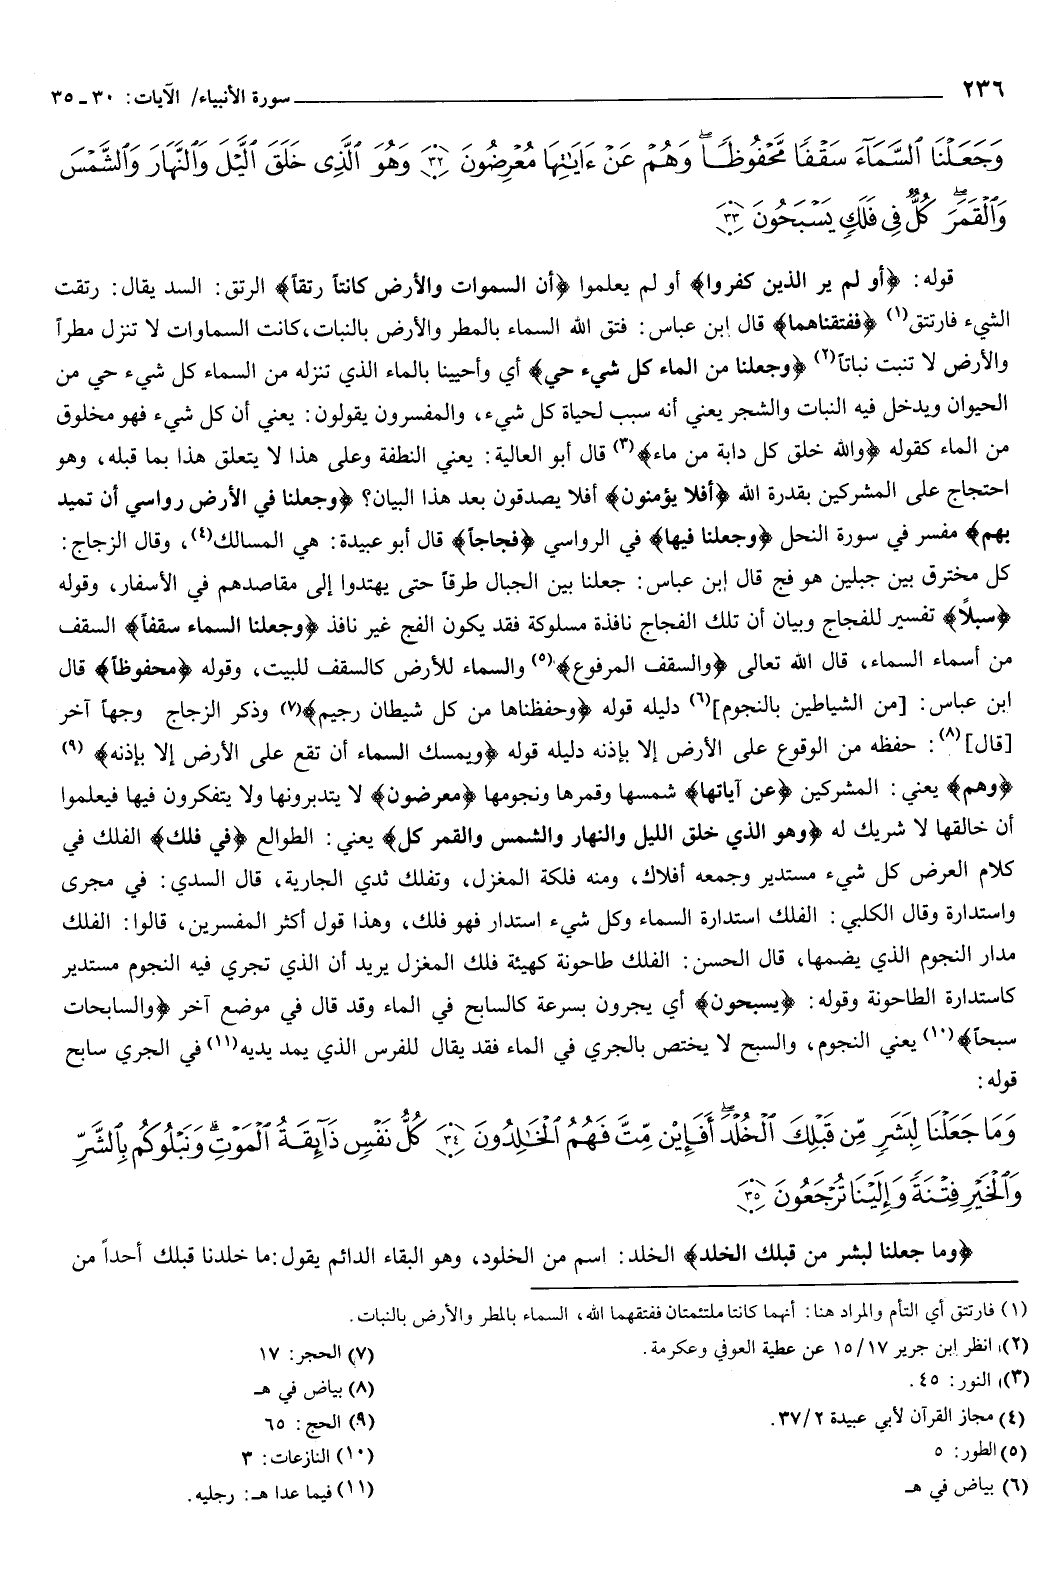 ٢٣٦ سورة الأنبياء/ الآيات: ٣٠ ـ ٣٥
وَجَعَلْنَا ٱلسَّمَآءَ سَقْفًا مَّحْفُوظًا ۖ وَهُمْ عَنْ ءَايَٰتِهَا مُعْرِضُونَ ٣٢ وَهُوَ ٱلَّذِى خَلَقَ ٱلَّيْلَ وَٱلنَّهَارَ وَٱلشَّمْسَ
وَٱلْقَمَرَ ۖ كُلٌّ فِى فَلَكٍ يَسْبَحُونَ ٣٣
قوله: ﴿أو لم ير الذين كفروا﴾ أو لم يعلموا ﴿أن السموات والأرض كانتا رتقاً﴾ الرتق: السد يقال: رتقت
الشيء فارتتق(١) ﴿ففتقناهما﴾ قال إبن عباس: فتق الله السماء بالمطر والأرض بالنبات،كانت السماوات لا تنزل مطراً
والأرض لا تنبت نباتاً(٢) ﴿وجعلنا من الماء كل شيء حي﴾ أي وأحيينا بالماء الذي تنزله من السماء كل شيء حي من
الحيوان ويدخل فيه النبات والشجر يعني أنه سبب لحياة كل شيء، والمفسرون يقولون: يعني أن كل شيء فهو مخلوق
من الماء كقوله ﴿والله خلق كل دابة من ماء﴾(٣) قال أبو العالية: يعني النطفة وعلى هذا لا يتعلق هذا بما قبله، وهو
احتجاج على المشركين بقدرة الله ﴿أفلا يؤمنون﴾ أفلا يصدقون بعد هذا البيان؟ ﴿وجعلنا في الأرض رواسي أن تميد
بهم﴾ مفسر في سورة النحل ﴿وجعلنا فيها﴾ في الرواسي ﴿فجاجاً﴾ قال أبو عبيدة: هي المسالك(٤)، وقال الزجاج:
كل مخترق بين جبلين هو فج قال إبن عباس: جعلنا بين الجبال طرقاً حتى يهتدوا إلى مقاصدهم في الأسفار، وقوله
﴿سبلاً﴾ تفسير للفجاج وبيان أن تلك الفجاج نافذة مسلوكة فقد يكون الفج غير نافذ ﴿وجعلنا السماء سقفاً﴾ السقف
من أسماء السماء، قال الله تعالى ﴿والسقف المرفوع﴾(٥) والسماء للأرض كالسقف للبيت، وقوله ﴿محفوظاً﴾ قال
ابن عباس: [من الشياطين بالنجوم](٦) دليله قوله ﴿وحفظناها من كل شيطان رجيم﴾(٧) وذكر الزجاج وجهاً آخر
[قال](٨): حفظه من الوقوع على الأرض إلا بإذنه دليله قوله ﴿ويمسك السماء أن تقع على الأرض إلا بإذنه﴾ (٩)
﴿وهم﴾ يعني: المشركين ﴿عن آياتها﴾ شمسها وقمرها ونجومها ﴿معرضون﴾ لا يتدبرونها ولا يتفكرون فيها فيعلموا
أن خالقها لا شريك له ﴿وهو الذي خلق الليل والنهار والشمس والقمر كل﴾ يعني: الطوالع ﴿في فلك﴾ الفلك في
كلام العرض كل شيء مستدير وجمعه أفلاك، ومنه فلكة المغزل، وتفلك ثدي الجارية، قال السدي: في مجرى
واستدارة وقال الكلبي: الفلك استدارة السماء وكل شيء استدار فهو فلك، وهذا قول أكثر المفسرين، قالوا: الفلك
مدار النجوم الذي يضمها، قال الحسن: الفلك طاحونة كهيئة فلك المغزل يريد أن الذي تجري فيه النجوم مستدير
كاستدارة الطاحونة وقوله: ﴿يسبحون﴾ أي يجرون بسرعة كالسابح في الماء وقد قال في موضع آخر ﴿والسابحات
سبحاً﴾(١٠) يعني النجوم، والسبح لا يختص بالجري في الماء فقد يقال للفرس الذي يمد يديه(١١) في الجري سابح
قوله:
وَمَا جَعَلْنَا لِبَشَرٍ مِّن قَبْلِكَ ٱلْخُلْدَ ۖ أَفَإِيْن مِّتَّ فَهُمُ ٱلْخَٰلِدُونَ ٣٤ كُلُّ نَفْسٍ ذَآئِقَةُ ٱلْمَوْتِ ۗ وَنَبْلُوكُم بِٱلشَّرِّ
وَٱلْخَيْرِ فِتْنَةً ۖ وَإِلَيْنَا تُرْجَعُونَ ٣٥
﴿وما جعلنا لبشر من قبلك الخلد﴾ الخلد: اسم من الخلود، وهو البقاء الدائم يقول:ما خلدنا قبلك أحداً من
(١) فارتتق أي التأم والمراد هنا: أنهما كانتا ملتئمتان ففتقهما الله، السماء بالمطر والأرض بالنبات.
(٢) انظر إبن جرير ١٥/١٧ عن عطية العوفي وعكرمة.
(٣) النور: ٤٥.
(٤) مجاز القرآن لأبي عبيدة ٣٧/٢.
(٥) الطور: ٥
(٦) بياض في هـ
(٧) الحجر: ١٧
(٨) بياض في هـ
(٩) الحج: ٦٥
(١٠) النازعات: ٣
(١١) فيما عدا هـ: رجليه.